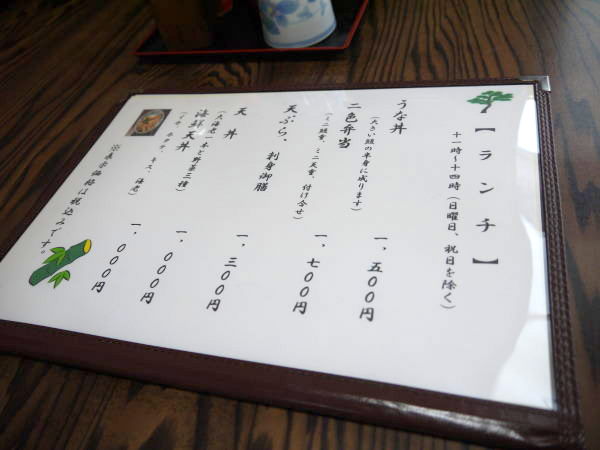 【ランチ】
十一時～十四時（日曜日、祝日を除く）
うな丼
一，五００円
（大きい鰻の半身に成ります）
二色弁当
一，七００円
（ミニ鰻重、ミニ天重、付け合せ）
天ぷら、刺身御膳
一，三００円
天丼
一，０００円
（大海老一本と野菜三種）
海鮮天丼
一，０００円
キス、海老）
※表示価格は税込みです。